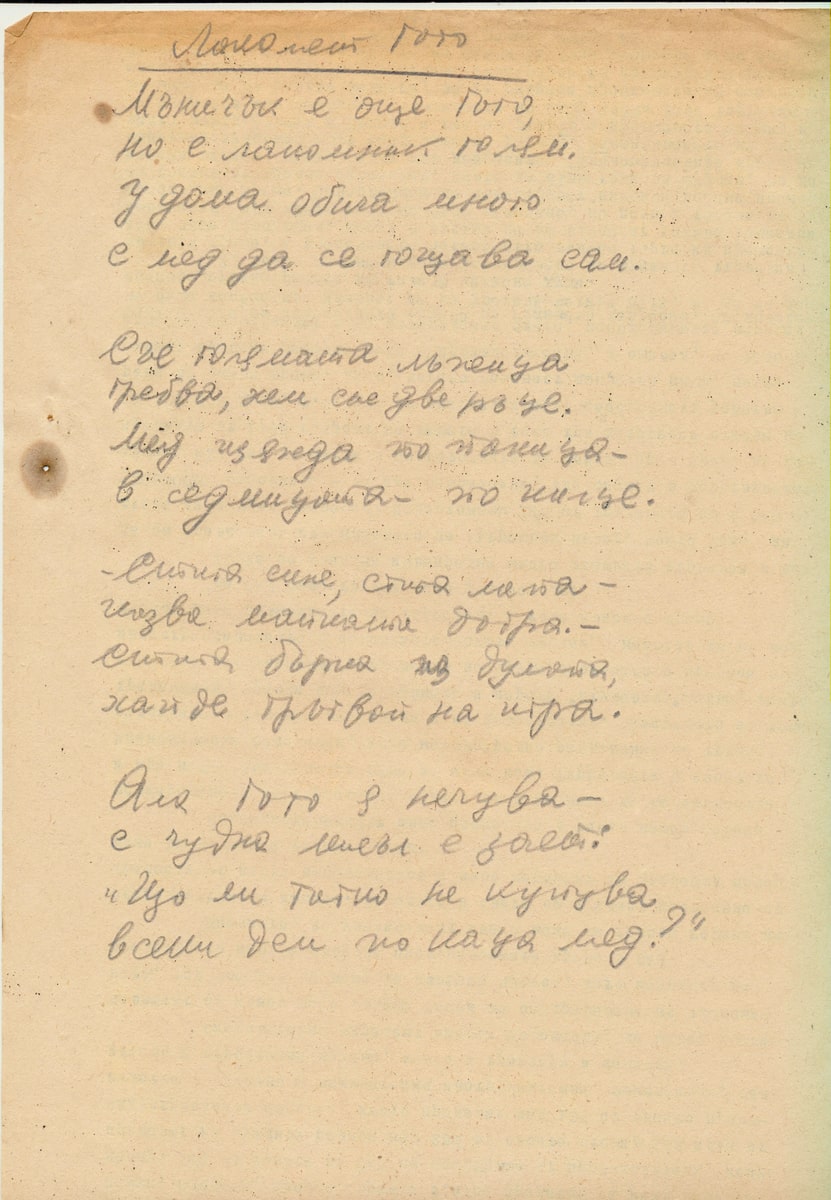 Лакомият Гото
Мъничък е още Гото,
но е лакомник голям.
У дома обича много
с мед да се гощава сам.
Със голямата лъжица
гребва, хем със две ръце.
Мед изяжда по паница –
в седмицата – по
– Стига сине, стига лапа –
казва майката добра. –
Стига бърка из дулапа,
хайде тръгвай на игра.
Ала Гото я нечува –
с чудна мисъл е зает:
„Що ли татко не купува
всеки ден по каца мед?“